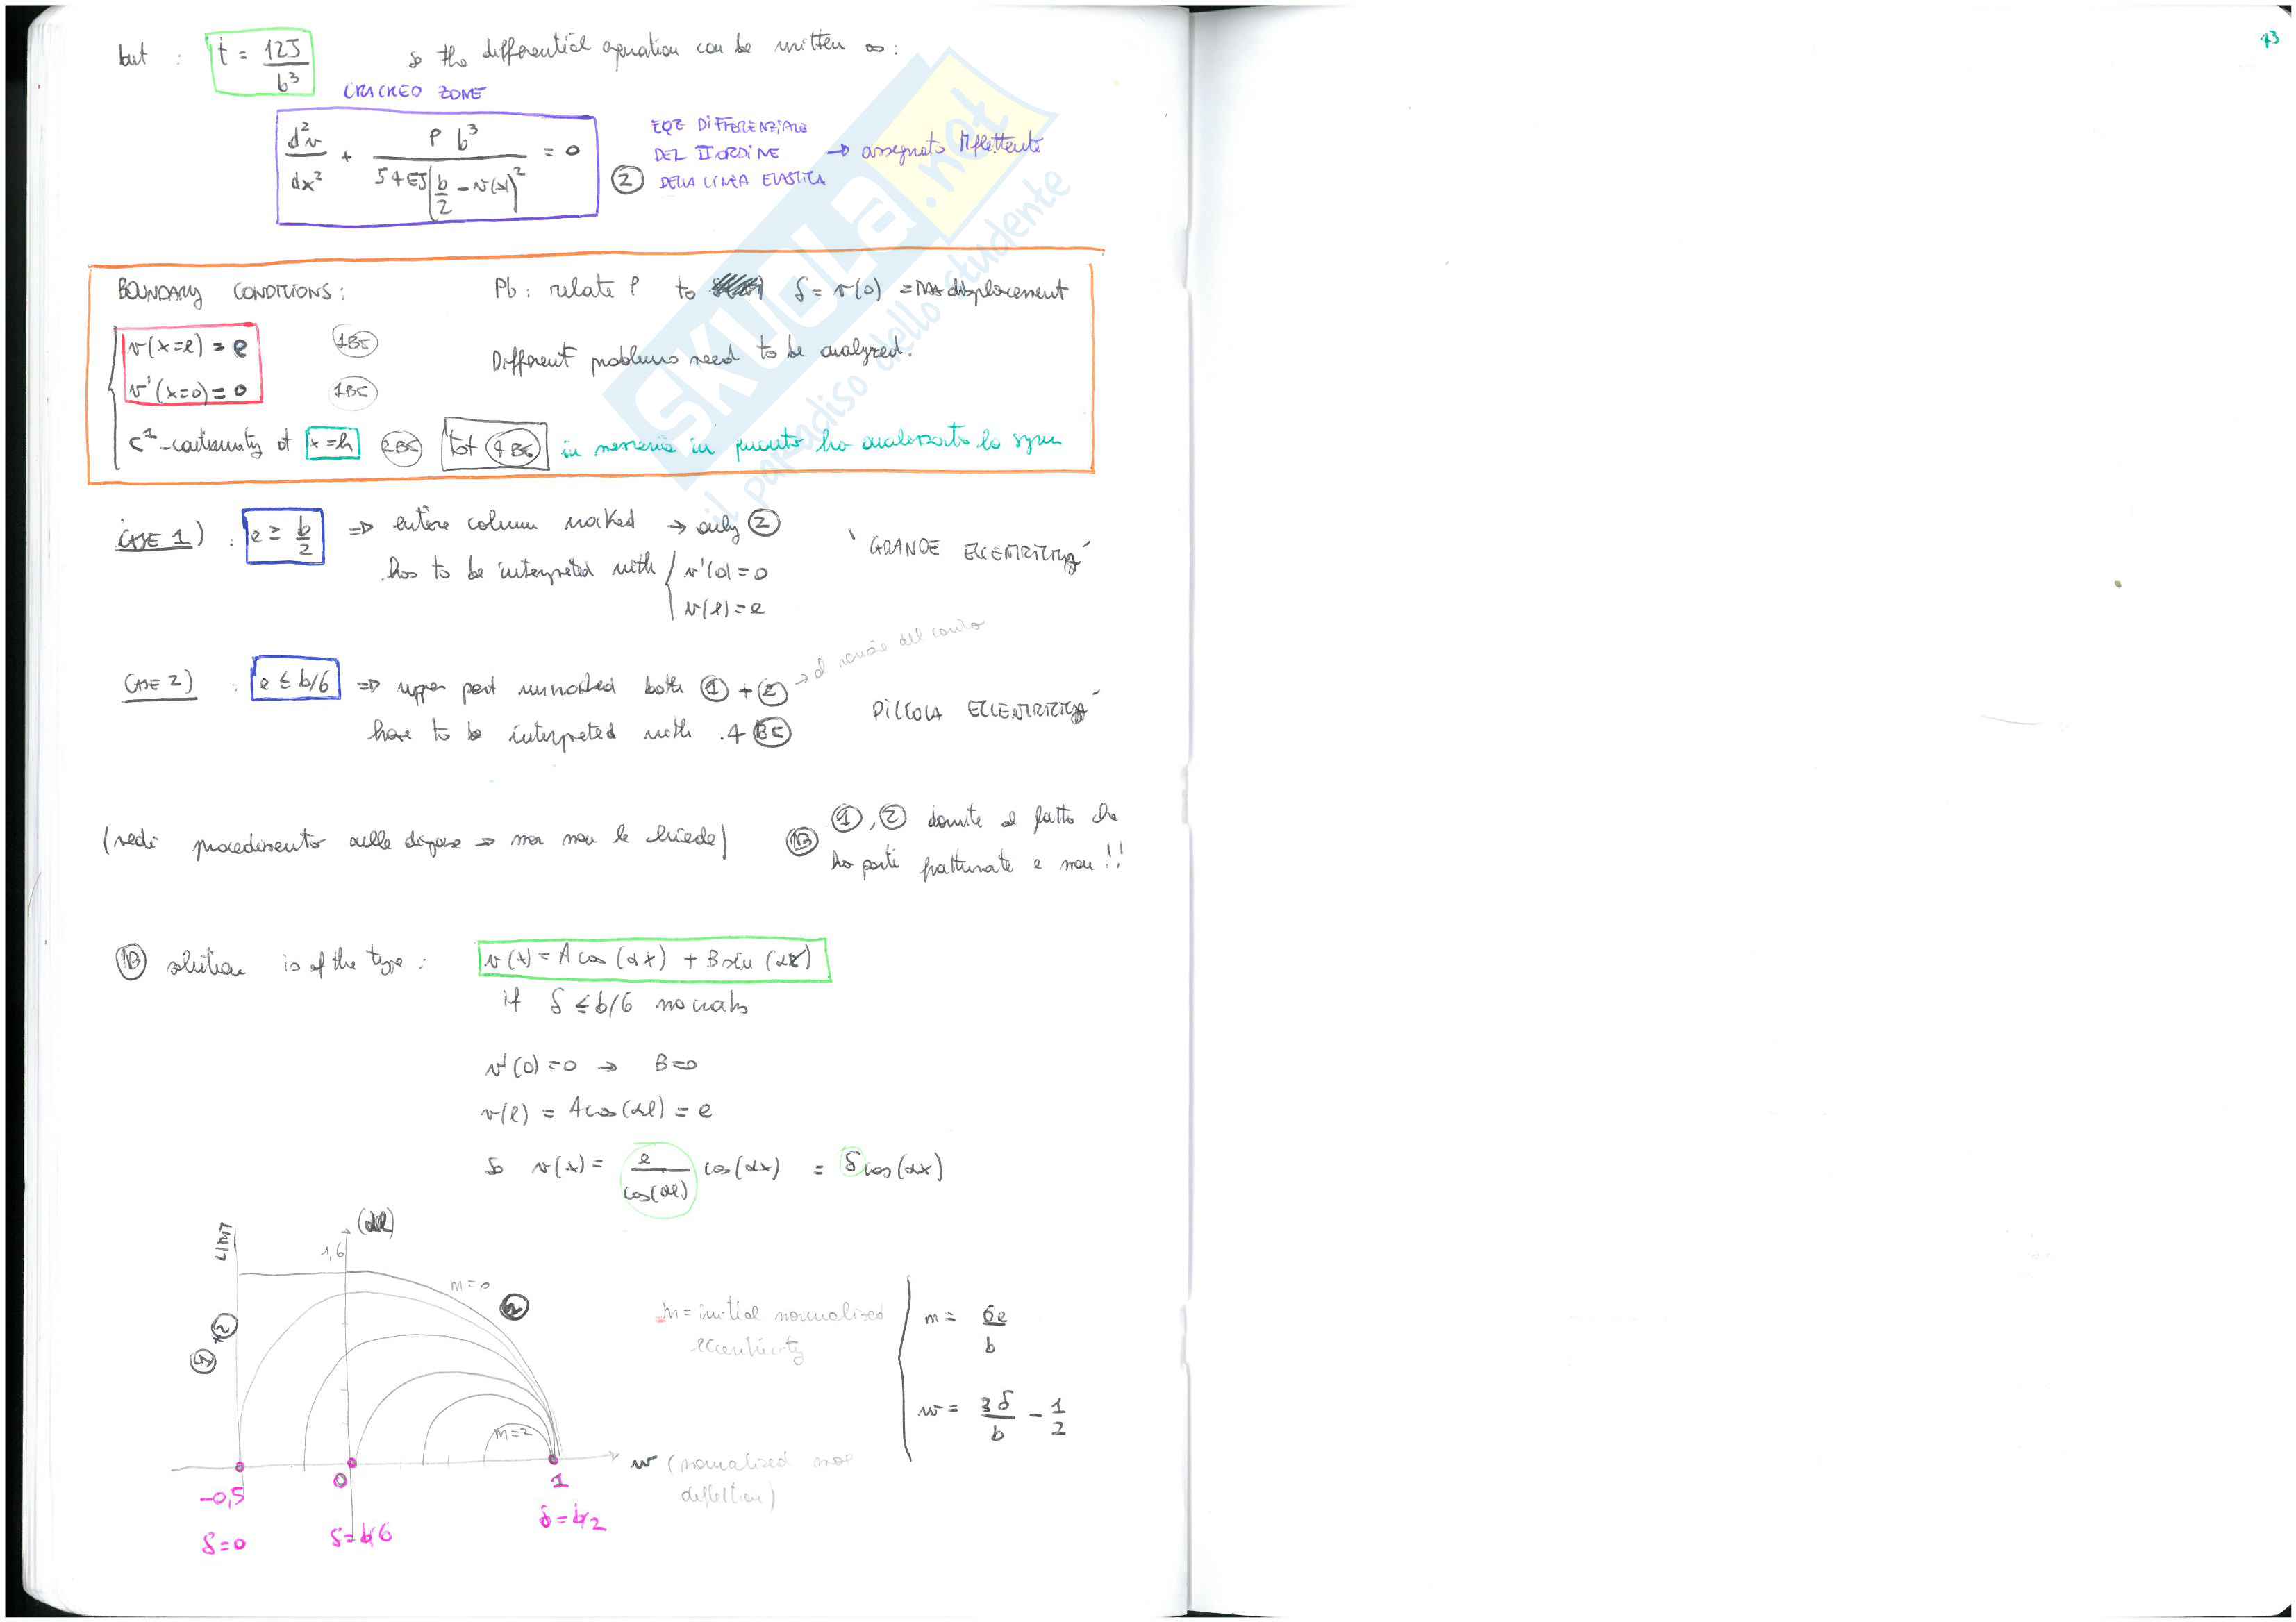 but : t = 12J / b³ so the differential equation can be written as :
CRACKED ZONE
d²v/dx² + P b³ / 54EJ(b/2 - v(x))² = 0
②
EQZ DIFFERENZIALE
DEL II ORDINE → assegnato Mflettente
DELLA LINEA ELASTICA
BOUNDARY CONDITIONS :
Pb : relate P to δ = v(0) = max displacement
v(x=l) = e 1BC
v'(x=0) = 0 1BC
Different problems need to be analyzed.
C¹-continuity at x=h 2BC tot 4BC in
CASE 1) : e ≥ b/2 ⇒ entire column cracked → only ②
has to be interpreted with { v'(0) = 0
v(l) = e
"GRANDE ECCENTRICITÀ"
CASE 2) : e ≤ b/6 ⇒ upper part uncracked both ① + ②
have to be interpreted with 4 BC
PICCOLA ECCENTRICITÀ
(vedi procedimento sulle dispense → ma non lo chiede)
NB ①, ② dovute al fatto che
ho parti fratturate e non !!
NB solution is of the type : v(x) = A cos (αx) + B sin (αx)
if δ ≤ b/6 no cracks
v'(0) = 0 → B=0
v(l) = A cos(αl) = e
so v(x) = e / cos(αl) cos(αx) = δ cos(αx)
LIMIT
(αl)
1,6
m=0
②
①+②
m=2
m = initial normalized
eccentricity
m = 6e / b
w = 3δ / b - 1/2
w (normalized max
deflection)
-0,5
0
1
δ=0
δ=b/6
δ=b/2
73
SKUOLA.net
il paradiso dello studente